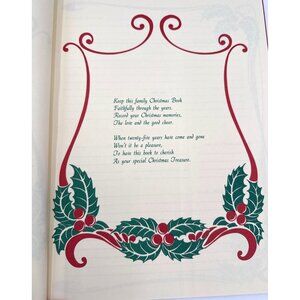 Keep this family Christmas Book
Faithfully through the years.
Record your Christmas memories,
The love and the good cheer.
When twenty-five years have come and gone
Won't it be a pleasure,
To have this book to cherish
As your special Christmas Treasure.